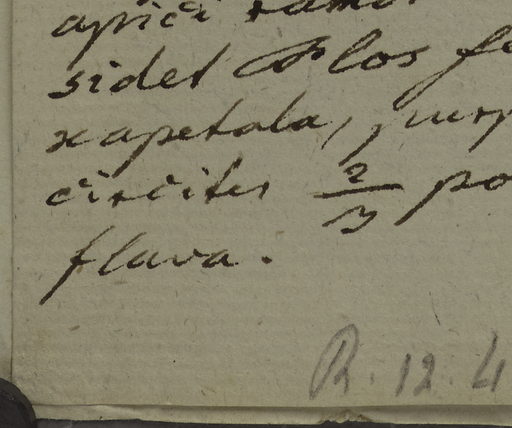 apici ramo
sidet Flos fe
xapetala, purp
circiter 2/3 po
flava.
R. 12. 4